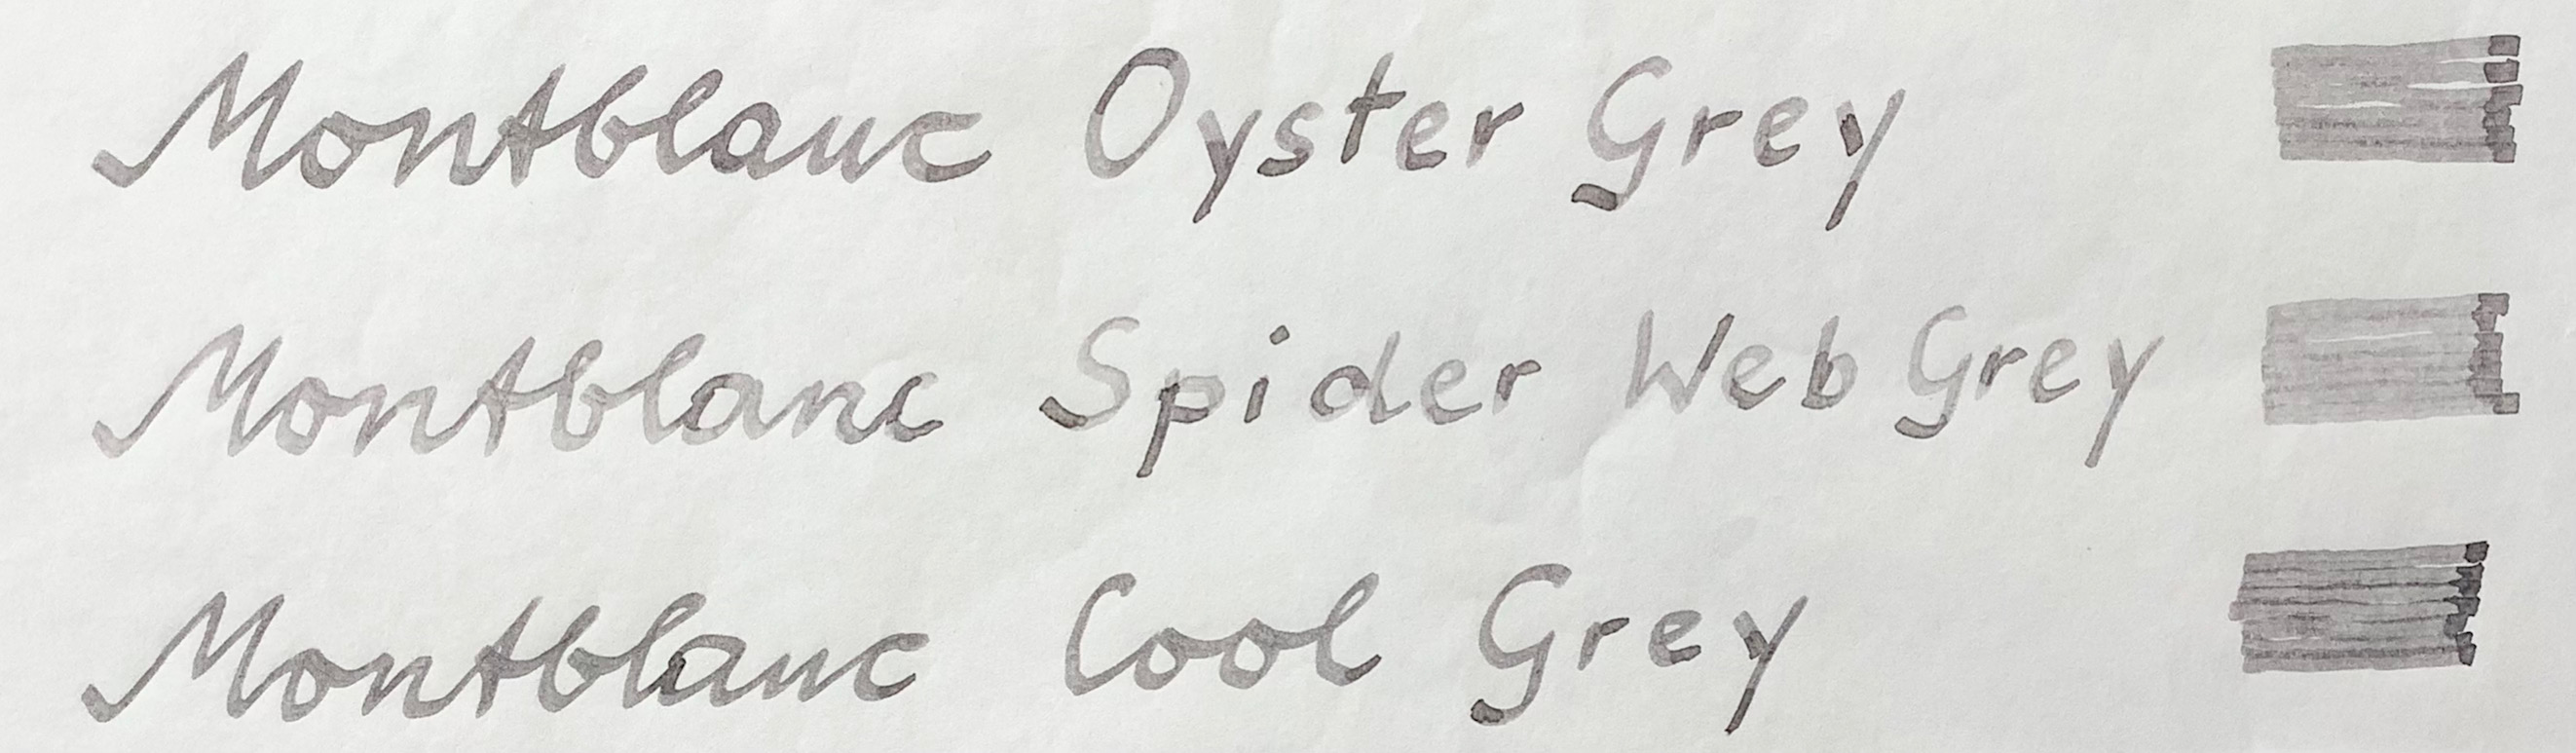 Montblanc Oyster Grey
Montblanc Spider Web Grey
Montblanc Cool Grey